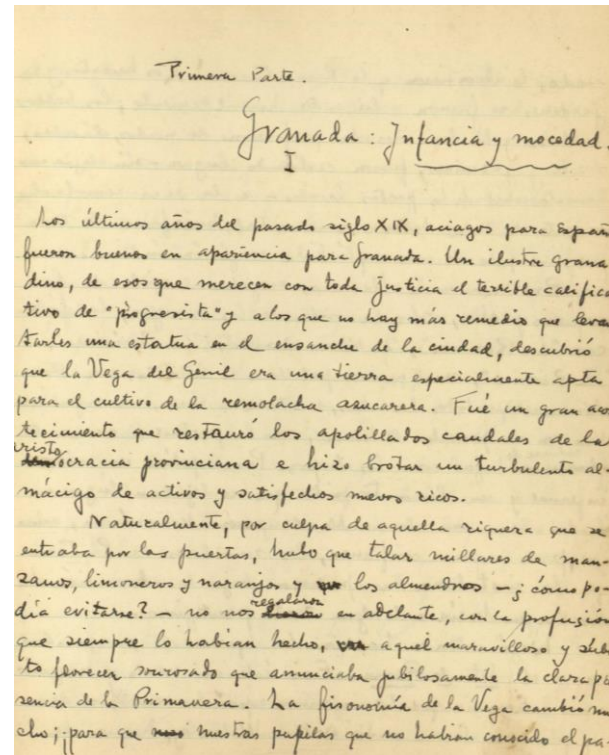 Primera Parte.
Granada: Infancia y mocedad.
I
Los últimos años del pasado siglo XIX, aciagos para Españ
fueron buenos en apariencia para Granada. Un ilustre grana
dino, de esos que merecen con toda justicia el terrible califica
tivo de "progresista" y a los que no hay más remedio que levan
tarles una estatua en el ensanche de la ciudad, descubrió
que la Vega del Genil era una tierra especialmente apta
para el cultivo de la remolacha azucarera. Fué un gran acon
tecimiento que restauró los apolillados caudales de la
aristocracia provinciana e hizo brotar un turbulento al-
mácigo de activos y satisfechos nuevos ricos.
Naturalmente, por culpa de aquella riqueza que se
entraba por las puertas, hubo que talar millares de man-
zanos, limoneros y naranjos y los almendros - ¿cómo po-
día evitarse? - no nos regalaron en adelante, con la profusión
que siempre lo habían hecho, aquel maravilloso y súbi
to florecer sonrosado que anunciaba jubilosamente la clara pre
sencia de la Primavera. La fisonomía de la Vega cambió mu
cho; para que nuestras pupilas que no habían conocido el pa